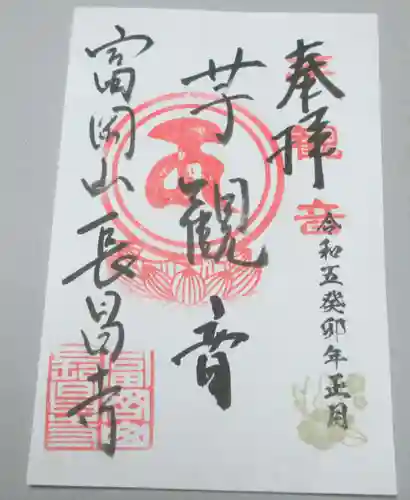 奉拝
芋観音
令和五癸卯年正月
芋觀音
富岡山長昌寺